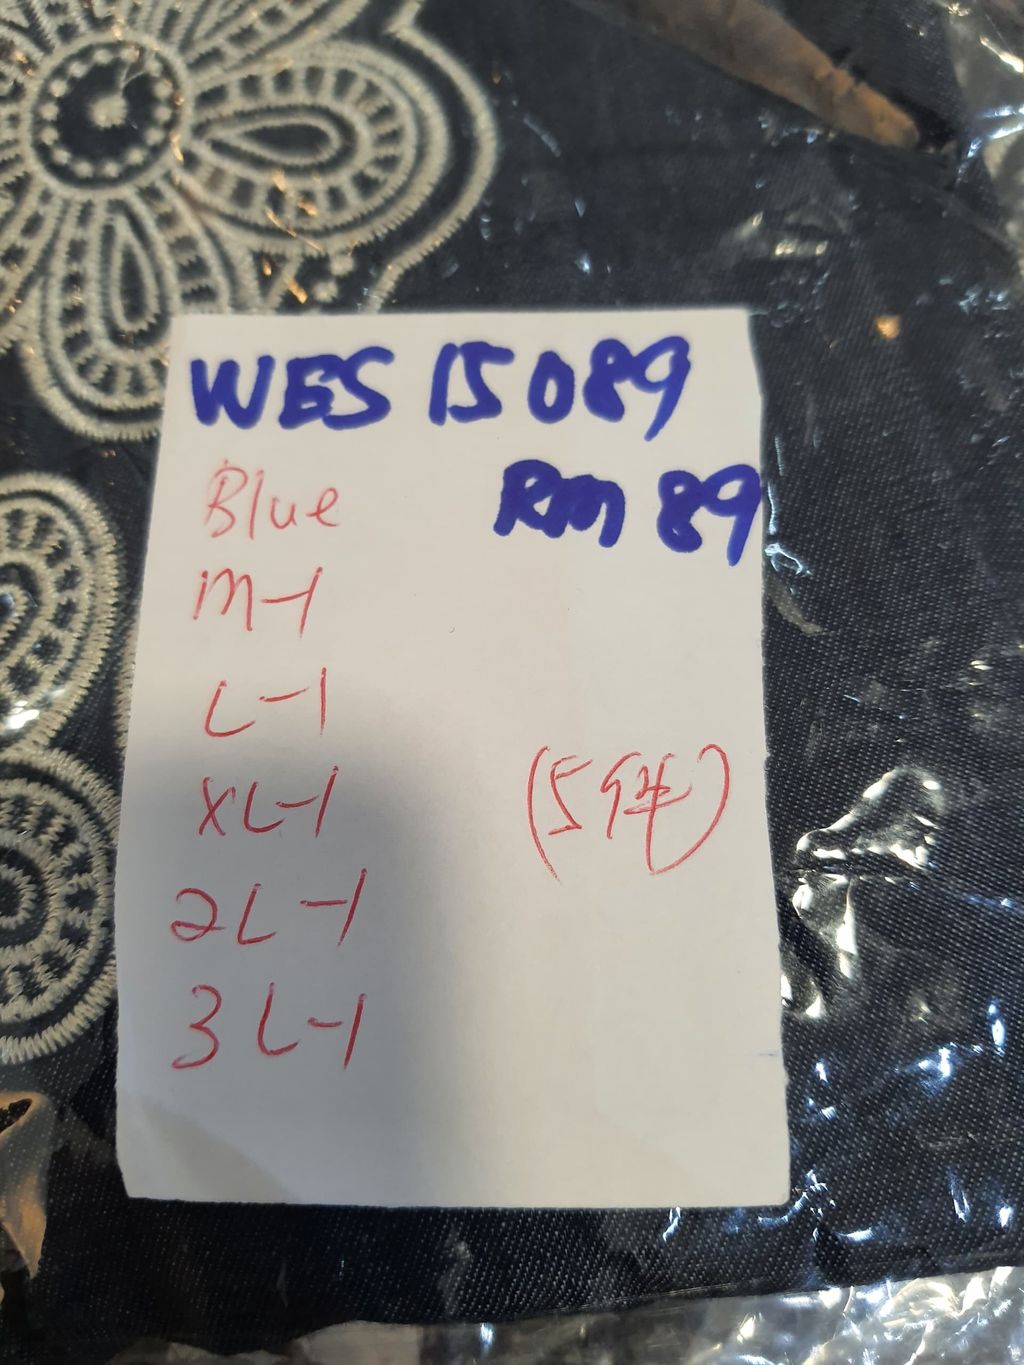 WES 15089
Blue RM 89
M-1
L-1
XL-1 (5件)
2L-1
3L-1